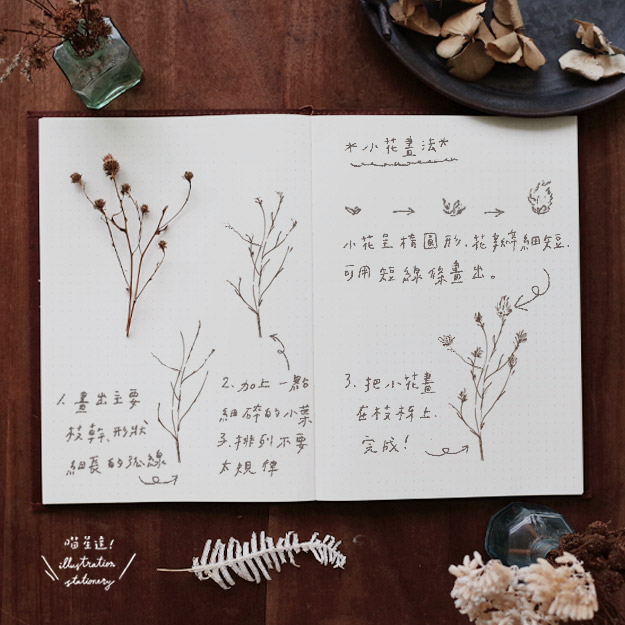 *小花畫法*
小花呈橢圓形.花瓣細短.
可用短線條畫出。
1. 畫出主要
枝幹、形狀
細長的弧線
2. 加上一點
細碎的小葉
3. 排列不要
太規律
3. 把小花畫
在枝梢上.
完成!
喵星達!
illustration
stationery